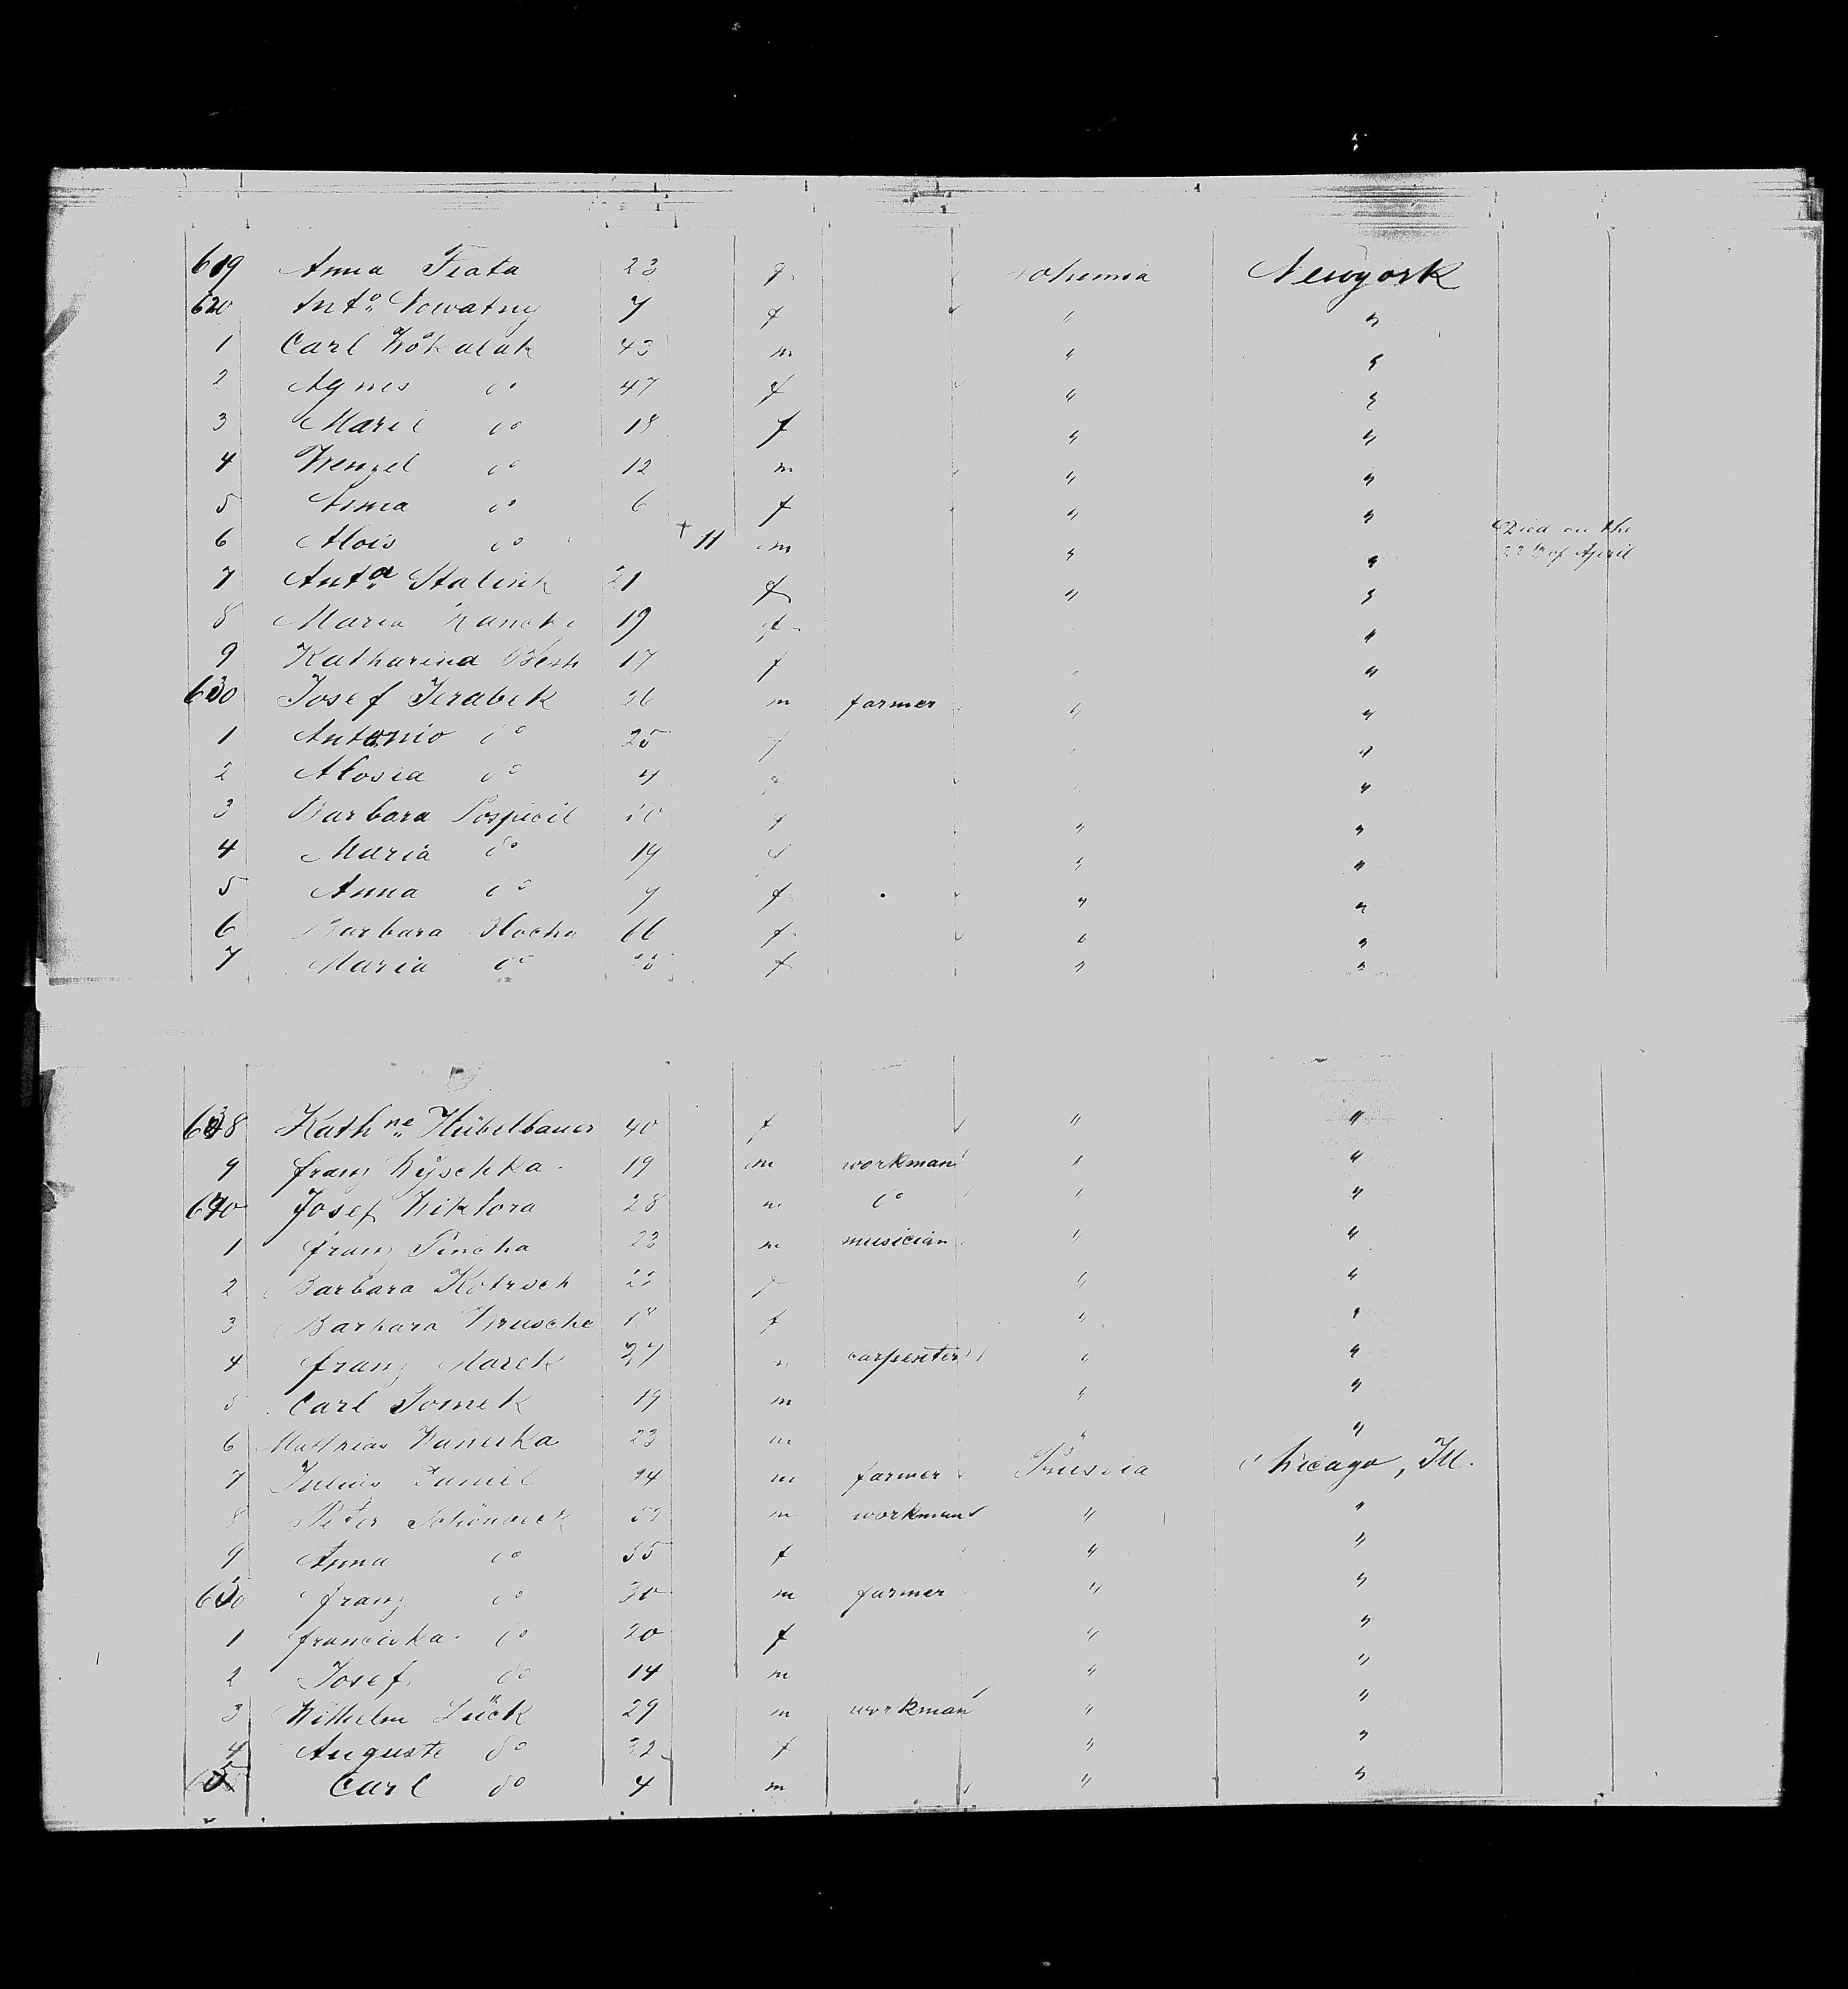 619 Anna Fiata 23 f. Bohemia Newyork
620 Anto. Nowatny 7 f " "
1 Carl Wokalak 43 m " "
2 Agnes do 47 f " "
3 Marie do 18 f " "
4 Wenzel do 12 m " "
5 Anna do 6 f " "
6 Alois do † 11 m " " Died on the
22th of April
7 Anta. Stalick 21 f " "
8 Maria 19 f "
9 Katharina Besh 17 f "
630 Josef Jerabek 26 m farmer " "
1 Antonio do 25 f "
2 Alosia do 4 "
3 Barbara Pospicil f " "
4 Maria do 19 f " "
5 Anna do 7 f " "
6 Barbara Blocha 66 f " "
7 Maria do f " "
638 Kathne. Hübelbauer 40 f " "
9 franz Wyschka 19 m workman " "
640 Josef Wiktora 28 m do " "
1 franz Pincha 23 m musician " "
2 Barbara Kotrsch f " "
3 Barbara Wruscha 18 f " "
4 franz Marek 27 m carpenter " "
5 Carl Tomek 19 m " "
6 Mathias Wanerka 23 m " "
7 Julius Daniel 24 m farmer Prussia Chicago, Ill.
8 Peter Schönbeck m workman " "
9 Anna do 55 f " "
650 franz do 30 m farmer " "
1 franciska do 20 f " "
2 Josef do 14 m " "
3 Wilhelm Lück 29 m workman " "
4 Auguste do 32 f " "
655 Carl do 4 m " "